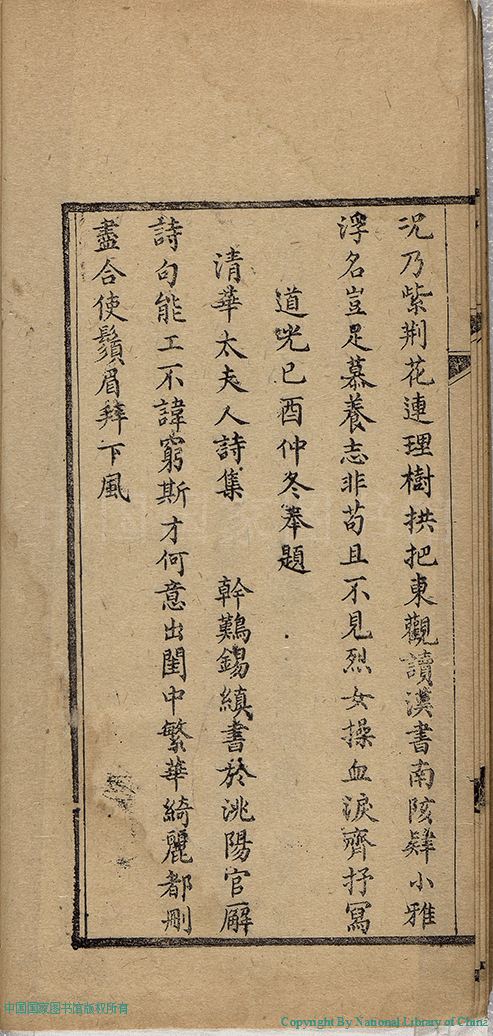 况乃紫荆花連理樹拱把東觀讀漢書南陔肄小雅
浮名豈足慕養志非苟且不見烈女操血淚齊抒冩
道光己酉仲冬奉題
清華太夫人詩集　　幹難錫縝書於洮陽官廨
詩句能工不諱窮斯才何意出閨中繁華綺麗都刪
盡合使鬚眉拜下風
中国国家图书馆版权所有
Copyright By National Library of China